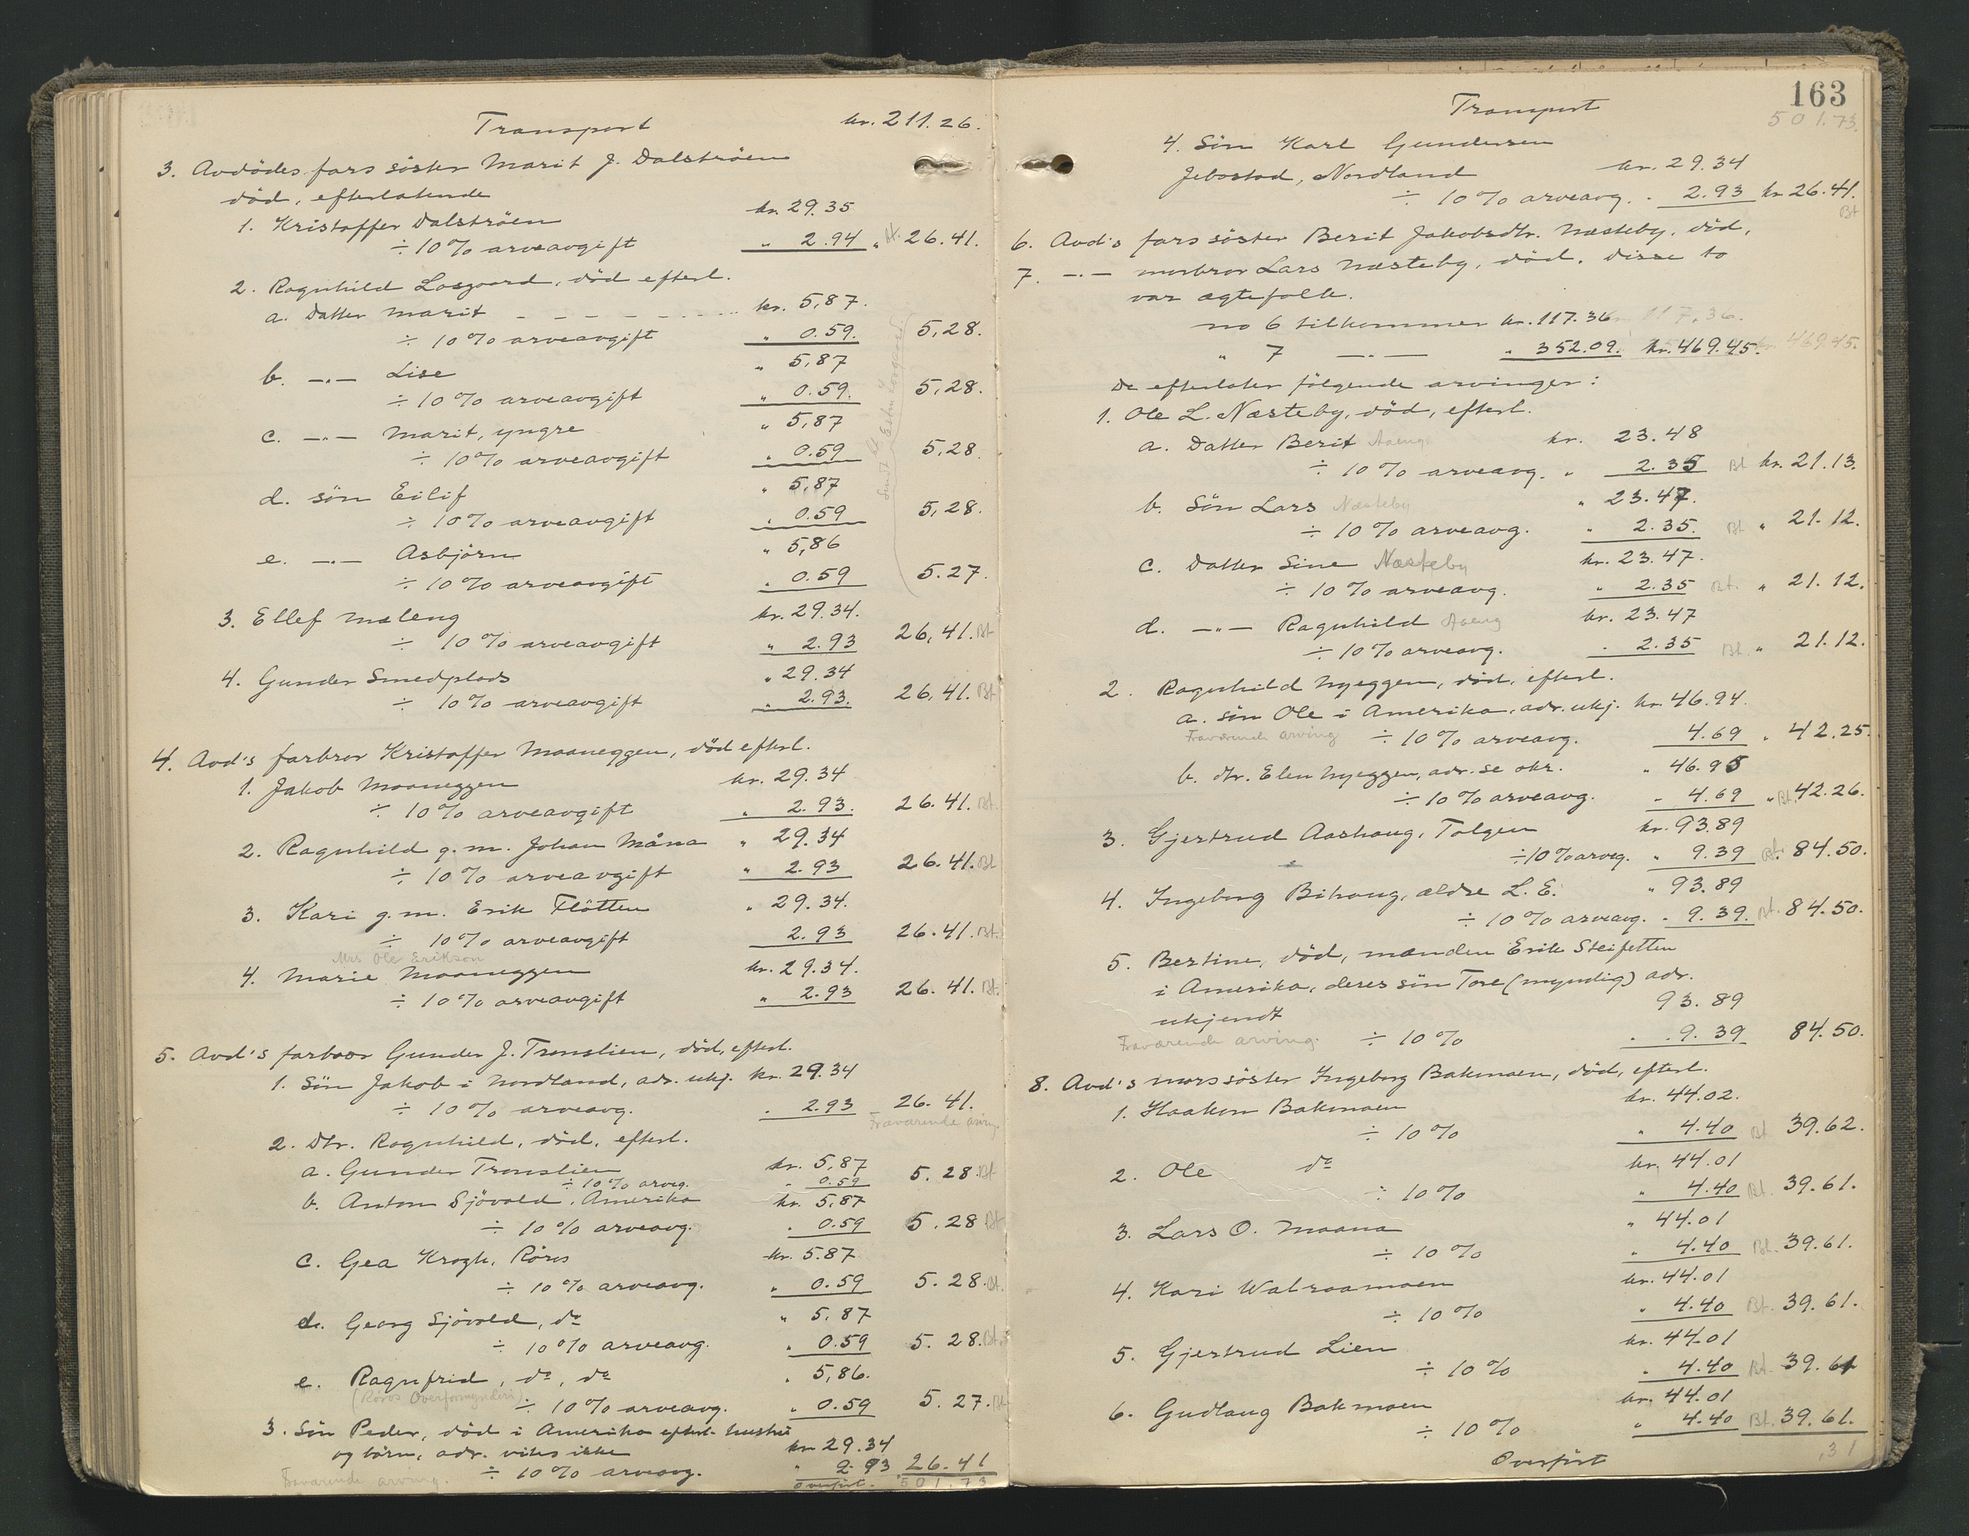 Transport kr. 211.26.
3. Avdödes fars söster Marit J. Dalströen
död, efterlatende
1. Kristoffer Dalströen kr. 29.35
÷ 10 % arveavgift " 2.94 " Bt. 26.41.
2. Ragnhild Losgaard, död efterl.
a. Datter Marit - - - - - - kr. 5,87.
÷ 10 % arveavgift " 0.59. 5,28.
b. -"- Lise " 5,87
÷ 10 % arveavgift " 0.59. 5,28.
c. -"- Marit, yngre " 5,87
÷ 10 % arveavgift " 0.59 5,28.
d. sön Eilif " 5,87
÷ 10 % arveavgift " 0.59 5,28.
e. -"- Asbjörn " 5,86
÷ 10 % arveavgift " 0.59 5.27.
3. Ellef Maleng kr. 29.34.
÷ 10 % arveavgift " 2.93 26,41. Bt
4. Gunder Smedplads " 29.34
÷ 10 % arveavgift " 2.93. 26,41. Bt
4. Avd's farbror Kristoffer Moaneggen, död efterl.
1. Jakob Moaneggen kr. 29.34
÷ 10 % arveavgift " 2.93. 26.41. Bt.
2. Ragnhild g. m. Johan Måna " 29.34
÷ 10 % arveavgift " 2.93 26.41. Bt
3. Kari g. m. Erik Flötten " 29.34.
÷ 10 % arveavgift 2.93 26.41. Bt.
Mrs Ole Erikson
4. Marie Moaneggen kr. 29.34.
÷ 10 % arveavgift " 2.93 26.41. Bt.
5. Avd's farbror Gunder J. Tronslien, död, efterl.
1. Sön Jakob i Nordland, adr. ukj. kr. 29.34
÷ 10 % arveavg. . 2.93 26.41.
Fraværende arving.
2. Dtr. Ragnhild, död, efterl.
a. Gunder Tronslien kr. 5,87
÷ 10 % arveg. " 0.59 5.28. Bt
b. Anton Sjövold, Amerika kr. 5,87
÷ 10 % arveavg. " 0.59 5.28 Bt
c. Gea Krogh, Röros kr. 5.87
÷ 10 % arveavg. " 0.59 5.28. Bt.
d. Georg Sjövold, do " 5,87
÷ 10 % arveavg. " 0.59 5.28. Bt.
e. Ragnfrid, do, do " 5,86.
(Röros Overformynderi). ÷ 10 % arveavg. " 0.59 5.27. Bt
3. Sön Peder, död i Amerika efterl. hustru
og börn, adr. vites ikke kr. 29.34
Fraværende arving. ÷ 10 % arveavg. " 2.93 26.41
Overfört. 501.73
163
Transport 501.73.
4. Sön Karl Gundersen
Jebostad, Nordland kr. 29.34
÷ 10 % arveavg. . 2.93 kr 26.41.
Bt
6. Avd's fars söster Berit Jakobsdtr. Næsteby, död,
7. -"- morbror Lars Næsteby, död. Disse to
var ægtefolk.
no 6 tilkommer kr. 117.36 117,36.
" 7 -"- " 352.09. kr. 469.45. kr. 469.45.
De efterlater fölgende arvinger:
1. Ole L. Næsteby, död, efterl.
a. Datter Berit Aaeng kr. 23.48
÷ 10 % arveavg. " 2.35 Bt kr. 21.13.
b. Sön Lars Næsteby " 23.47.
÷ 10 % arveavg. " 2.35. Bt " 21.12.
c. Datter Sine Næsteby kr. 23.47.
÷ 10 % arveavg. " 2.35 Bt. " 21.12.
d. -"- Ragnhild Aaeng kr. 23.47
÷ 10 % arveavg. . 2.35 Bt. " 21.12.
2. Ragnhild Nyeggen, död, efterl.
a. sön Ole i Amerika, adr. ukj. kr. 46.94.
Fraværende arving ÷ 10 % arveavg. 4.69 " 42.25.
b. dtr. Elen Nyeggen, adr. se skr. " 46.95
÷ 10 % arveavg. " 4.69 " Bt. 42.26.
3. Gjertrud Aashaug, Tolgen kr. 93.89
÷ 10 % arveg. " 9.39 Bt. 84.50.
4. Ingeborg Bihaug, ældre L. E. " 93.89
÷ 10 % arveavg. . 9.39. Bt. 84.50.
5. Bertine, död, manden Erik Steifetten
i Amerika, deres sön Tore (myndig) adr.
ukjendt 93.89
Fraværende arving. ÷ 10 % . 9.39 84.50.
8. Avd's mors söster Ingeborg Bakmoen, död, efterl.
1. Haakon Bakmoen kr. 44.02.
÷ 10 % " 4.40 Bt 39.62.
2. Ole do kr. 44.01
÷ 10 % " 4.40 Bt. 39.61.
3. Lars O. Moana " 44.01
÷ 10 % " 4.40 Bt. 39.61.
4. Kari Walraamoen kr. 44.01
÷ 10 % " 4.40 Bt. 39.61.
5. Gjertrud Lien kr. 44.01
÷ 10 % " 4.40 Bt 39.61
6. Gudlaug Bakmoen kr. 44.01
÷ 10 % " 4.40 Bt. 39.61.
Overfört ,31